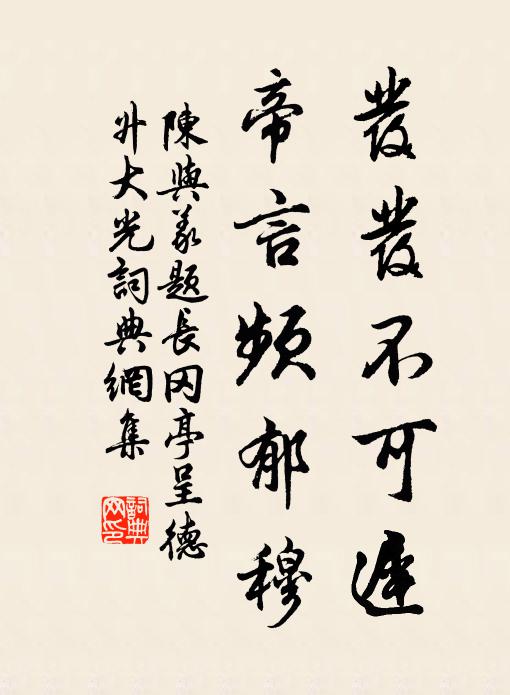 發發不可遲
帝言頻郁穆
陳與義題長岡亭呈德
升大光詞典網集
詞典網印